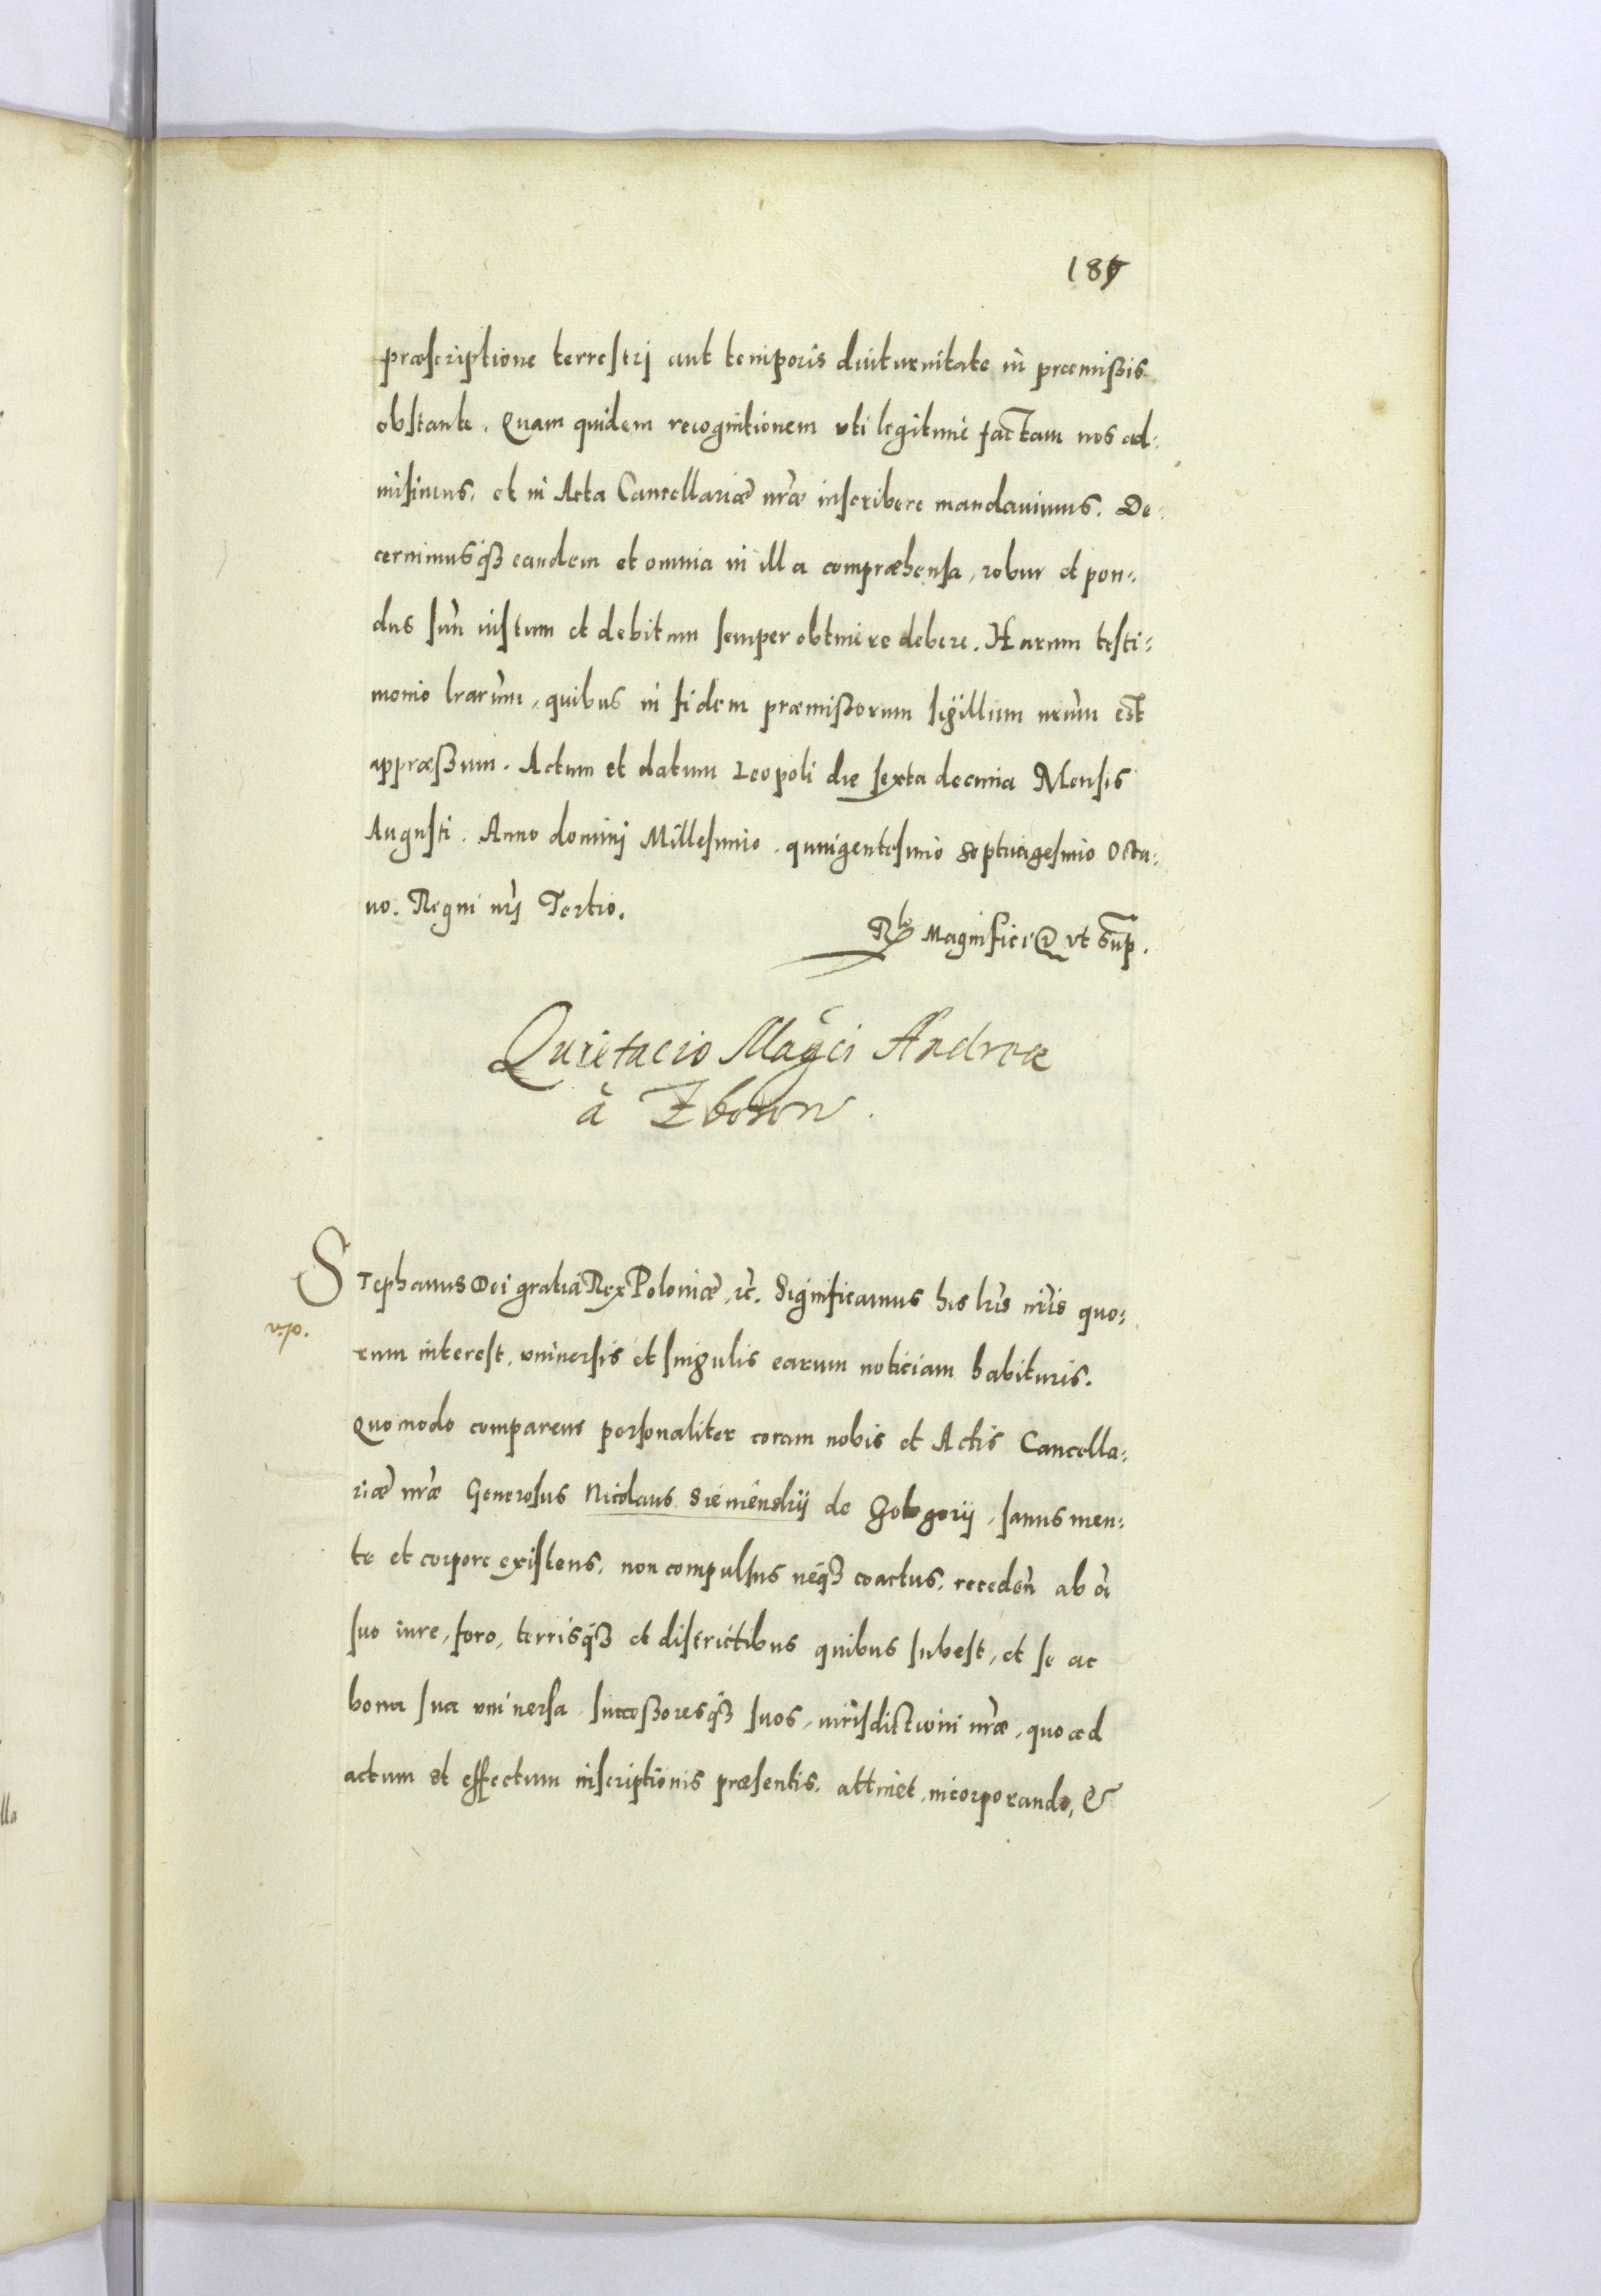 187
præscriptione terrestrj aut temporis diuturnitate in præmißis
obstante. Quam quidem recognitionem uti legitime factam nos ad:
misimus, et in Acta Cancellariæ nr̃æ inscribere mandauimus. De:
cernimusq̃ʒ eandem et omnia in illa compræhensa, robur et pon:
dus suũ iustum et debitum semper obtinere debere. Harum testi:
monio lrarũm, quibus in fidem præmißorum sigillum nrũm est
appræßum. Actum et datum Leopoli die sexta decima Mensis
Augusti. Anno dominj Millesimo quingentesimo septuagesimo Octa:
uo. Regni nr̃j Tertio.
Rlo Magnifici @ ut sup̃.
Quietacio Mag̃ci Andreæ
à Zborow.
STephanus Dei gratia Rex Poloniæ, ꝛc̃. Significamus his lr̃is nr̃is quo:
rum interest, uniuersis et singulis earum noticiam habituris.
Quomodo comparens personaliter coram nobis et Actis Cancella:
riæ nr̃æ Generosus Nicolaus Sieniensky de Gologory, sanus men:
te et corpore existens, non compulsus neq̃ʒ coactus, receden̄ ab oĩ
suo iure, foro, terrisq̃ʒ et districtibus quibus subest, et se ac
bona sua uniuersa successoresq̃ʒ suos, iurisdictioni nr̃æ, quo ad
actum et effectum inscriptionis præsentis, attinet, incorporando, &